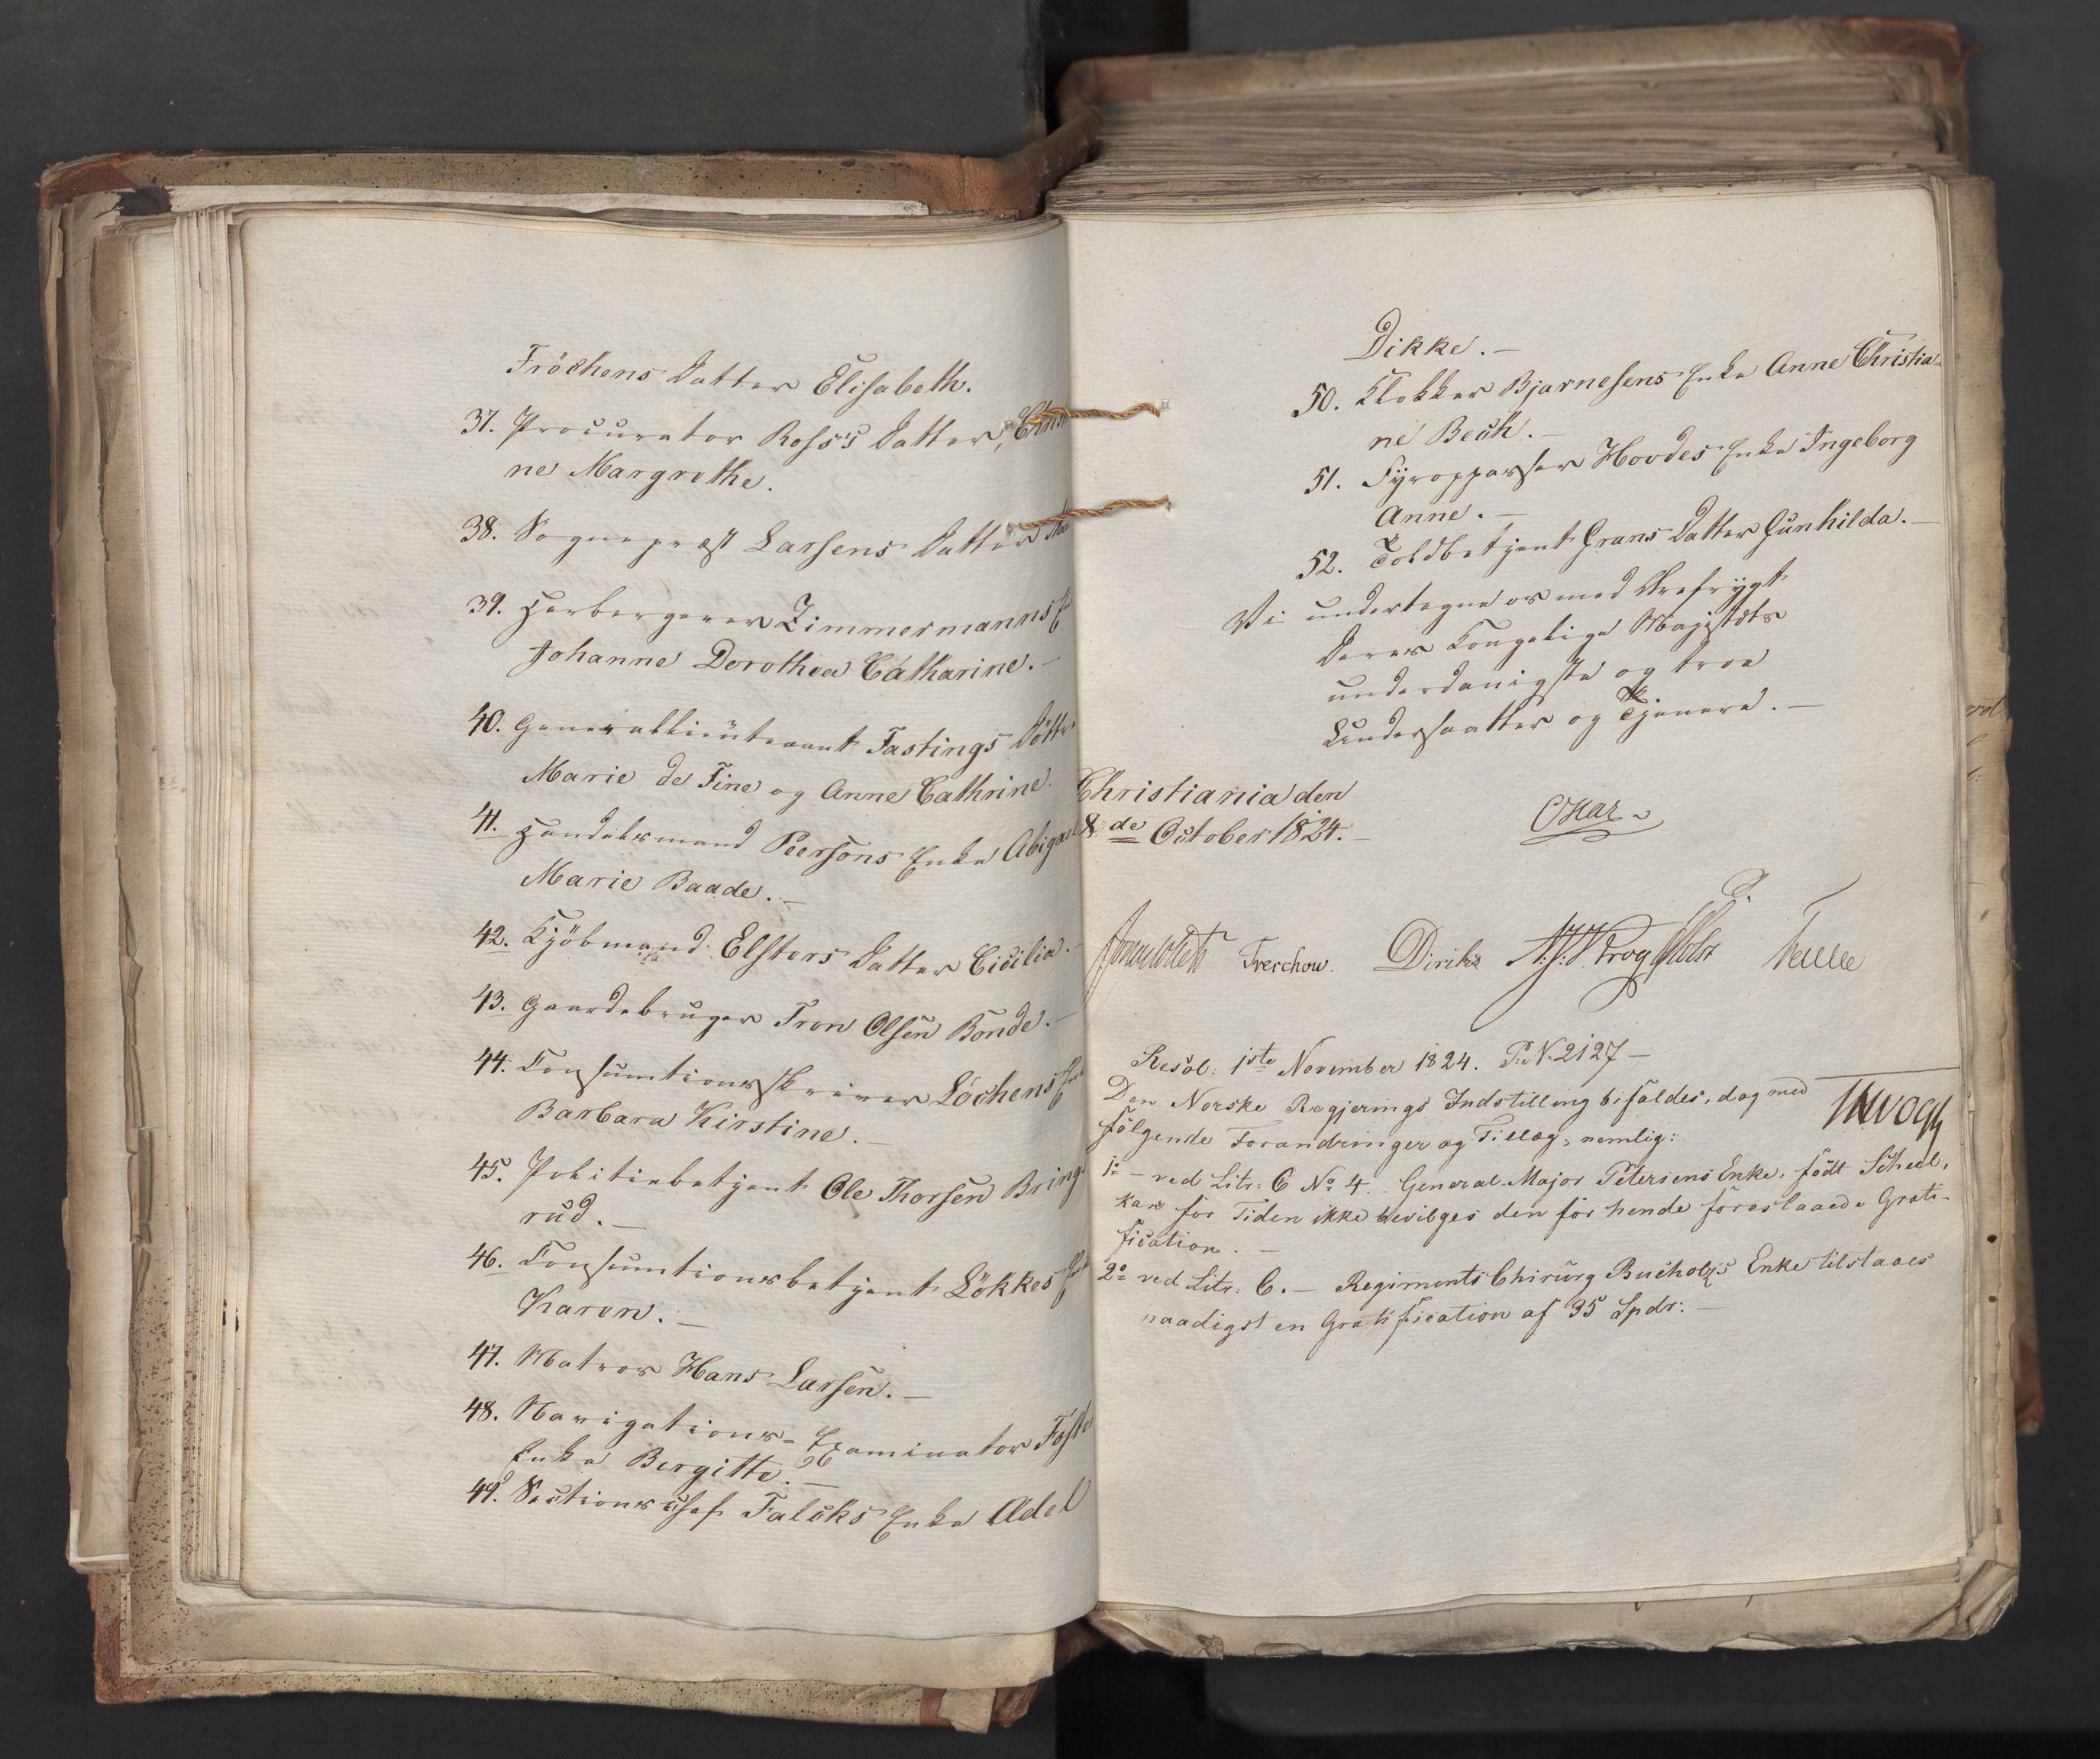 Fröchens Datter Elisabeth.
37. Procurator Ross's Datter,
ne Margrethe.
38. Sognepræst Larsens Datter
39. Herbergerer Zimmermanns
Johanne Dorothea Catharine.
40. Generallieutenant Fastings Döttre
Marie de Fine og Anne Cathrine.
41. Handelsmand Peersons Enke Abigael
Marie Baade.
42. Kjöbmand Elsters Datter Cicilia.
43. Gaardebruger Tron Olsen Bonde.
44. Consumtionsskriver Löchens
Barbara Kirstine.
45. Politiebetjent Ole Thorsen Bring-
rud.
46. Consumtionsbetjent Lökkes
Karen.
47. Matros Hans Larsen.
48. Navigations-Examinator
Enke Bergitte.
49. Sectionschef Falcks Enke Adel
Dikke.
50. Klokker Bjarnesens Enke Anne Christia-
ne Bech.
51. Fyropparser Hovdes Enke Ingeborg
Anne.
52. Toldbetjent Grans Datter Gunhilda.
Vi undertegne os med Ærefrygt
Deres Kongelige Majestæts
underdanigste og troe
Undersaatter og Tjenere.
Christiania den
8de October 1824.
Oscar
Sommerhielm Treschow. Diriks Krog Holst
Resol: 1ste November 1824. P: N: 2127
Den Norske Regjerings Indstilling bifaldes, dog med
fölgende Forandringer og Tillæg, nemlig:
1o ved Litr: C No 4. General-Major Petersens Enke, födt Scheel,
kan for Tiden ikke bevilges den for hende foreslaaede Grati-
fication.
2o ved Litr: C. Regiments Chirurg Bucholz's Enke tilstaaes
naadigst en Gratification af 35 Spdr: